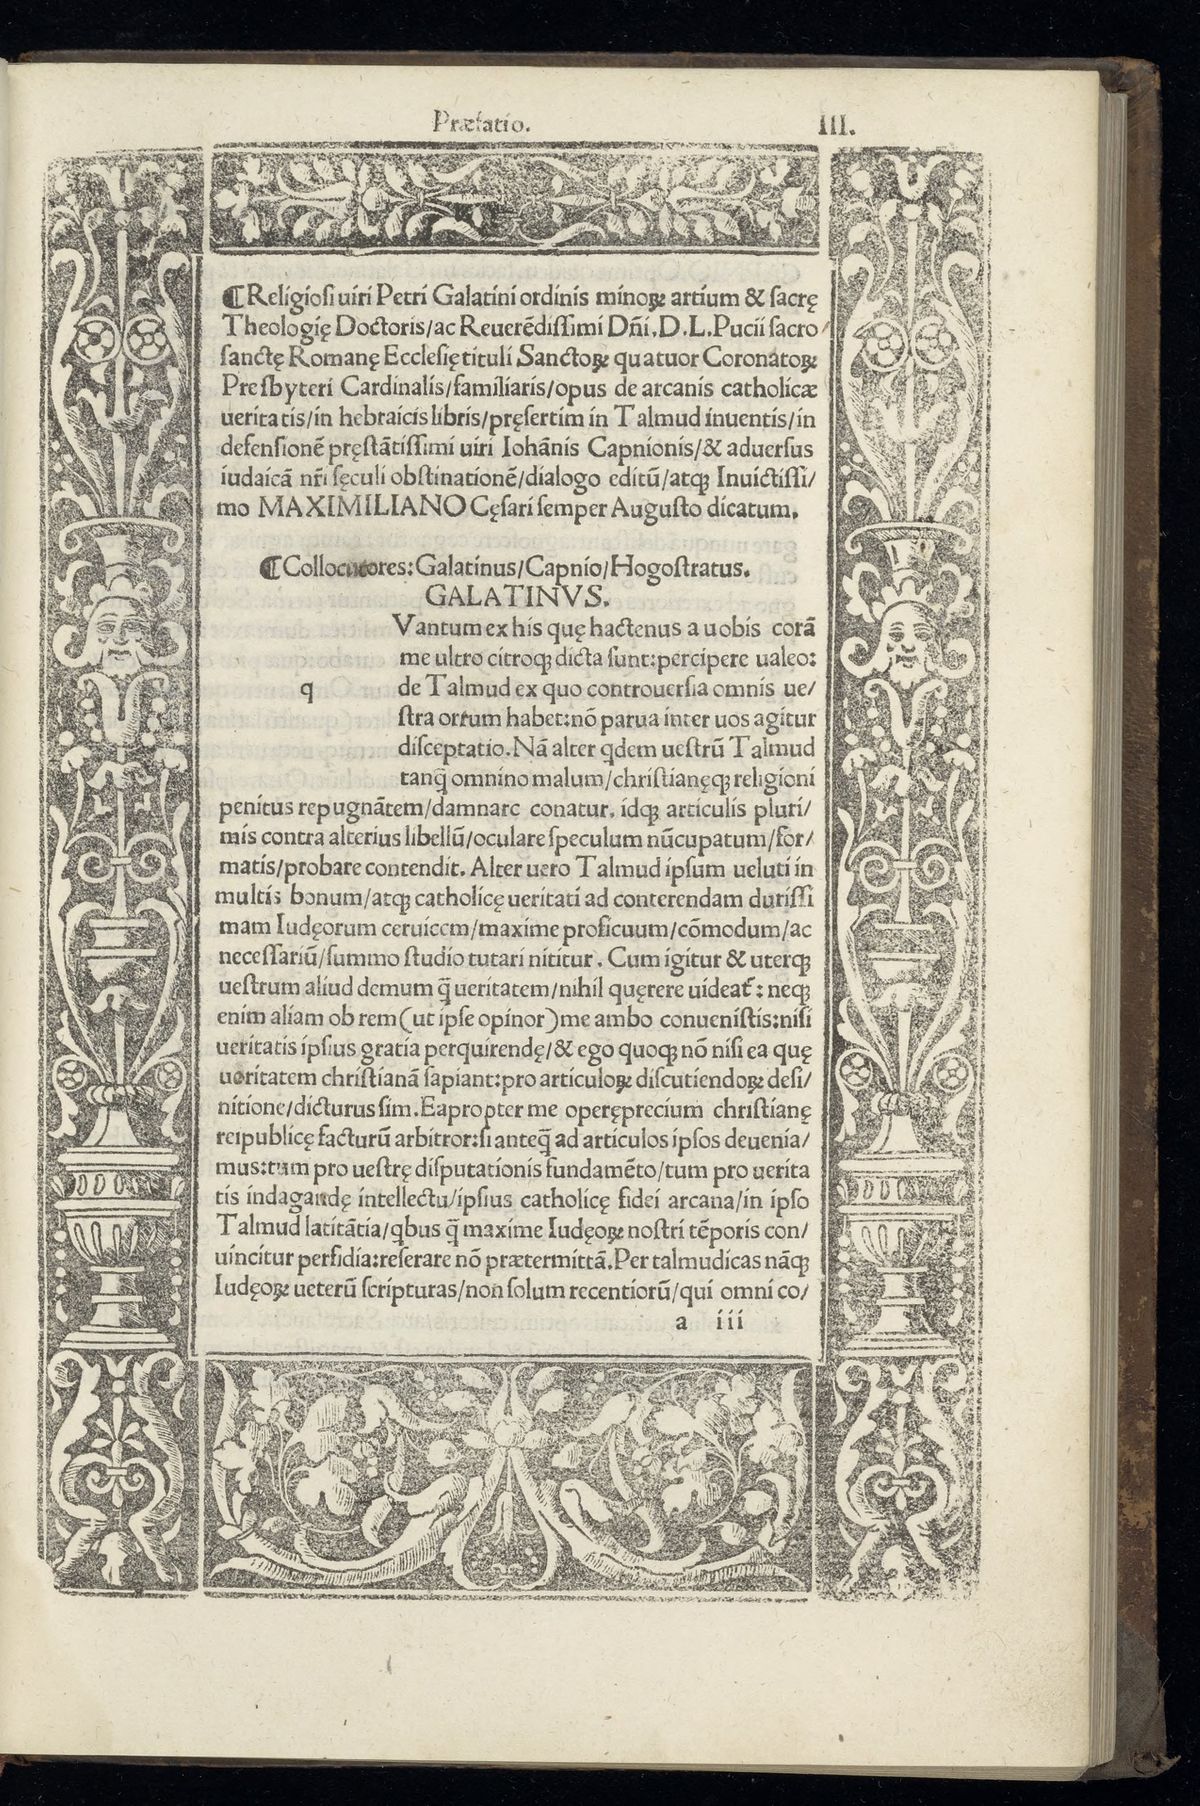 Præfatio. III.
¶Religiosi uiri Petri Galatini ordinis minoꝝ artium & sacrę
Theologię Doctoris/ac Reuerēdissimi Dñi.D.L.Pucii sacro/
sanctę Romanę Ecclesię tituli Sanctoꝝ quatuor Coronatoꝝ
Presbyteri Cardinalis/familiaris/opus de arcanis catholicæ
ueritatis/in hebraicis libris/pręsertim in Talmud inuentis/in
defensionē pręstātissimi uiri Iohānis Capnionis/& aduersus
iudaicā nr̃i sęculi obstinationē/dialogo editū/atqꝫ Inuictissi/
mo MAXIMILIANO Cęsari semper Augusto dicatum.
¶Collocutores:Galatinus/Capnio/Hogostratus.
GALATINVS.
Vantum ex his quę hactenus a uobis corā
me ultro citroqꝫ dicta sunt:percipere ualeo:
q de Talmud ex quo controuersia omnis ue/
stra ortum habet:nō parua inter uos agitur
disceptatio.Nā alter qdem uestrū Talmud
tanq̄ omnino malum/christianęqꝫ religioni
penitus repugnātem/damnare conatur. idqꝫ articulis pluri/
mis contra alterius libellū/oculare speculum nūcupatum/for/
matis/probare contendit. Alter uero Talmud ipsum ueluti in
multis bonum/atqꝫ catholicę ueritati ad conterendam durissi
mam Iudęorum ceruicem/maxime proficuum/cōmodum/ac
necessariū/summo studio tutari nititur. Cum igitur & uterqꝫ
uestrum aliud demum q̄ ueritatem/nihil quęrere uideat᷑: neqꝫ
enim aliam ob rem(ut ipse opinor)me ambo conuenistis:nisi
ueritatis ipsius gratia perquirendę/& ego quoqꝫ nō nisi ea quę
ueritatem christianā sapiant:pro articuloꝝ discutiendoꝝ desi/
nitione/dicturus sim.Eapropter me operęprecium christianę
reipublicę facturū arbitror:si anteq̄ ad articulos ipsos deuenia/
mus:tum pro uestrę disputationis fundamēto/tum pro uerita
tis indagandę intellectu/ipsius catholicę fidei arcana/in ipso
Talmud latitātia/qbus q̄ maxime Iudęoꝝ nostri tēporis con/
uincitur perfidia:reserare nō prætermittā.Per talmudicas nāqꝫ
Iudęoꝝ ueterū scripturas/non solum recentiorū/qui omni co/
a iii